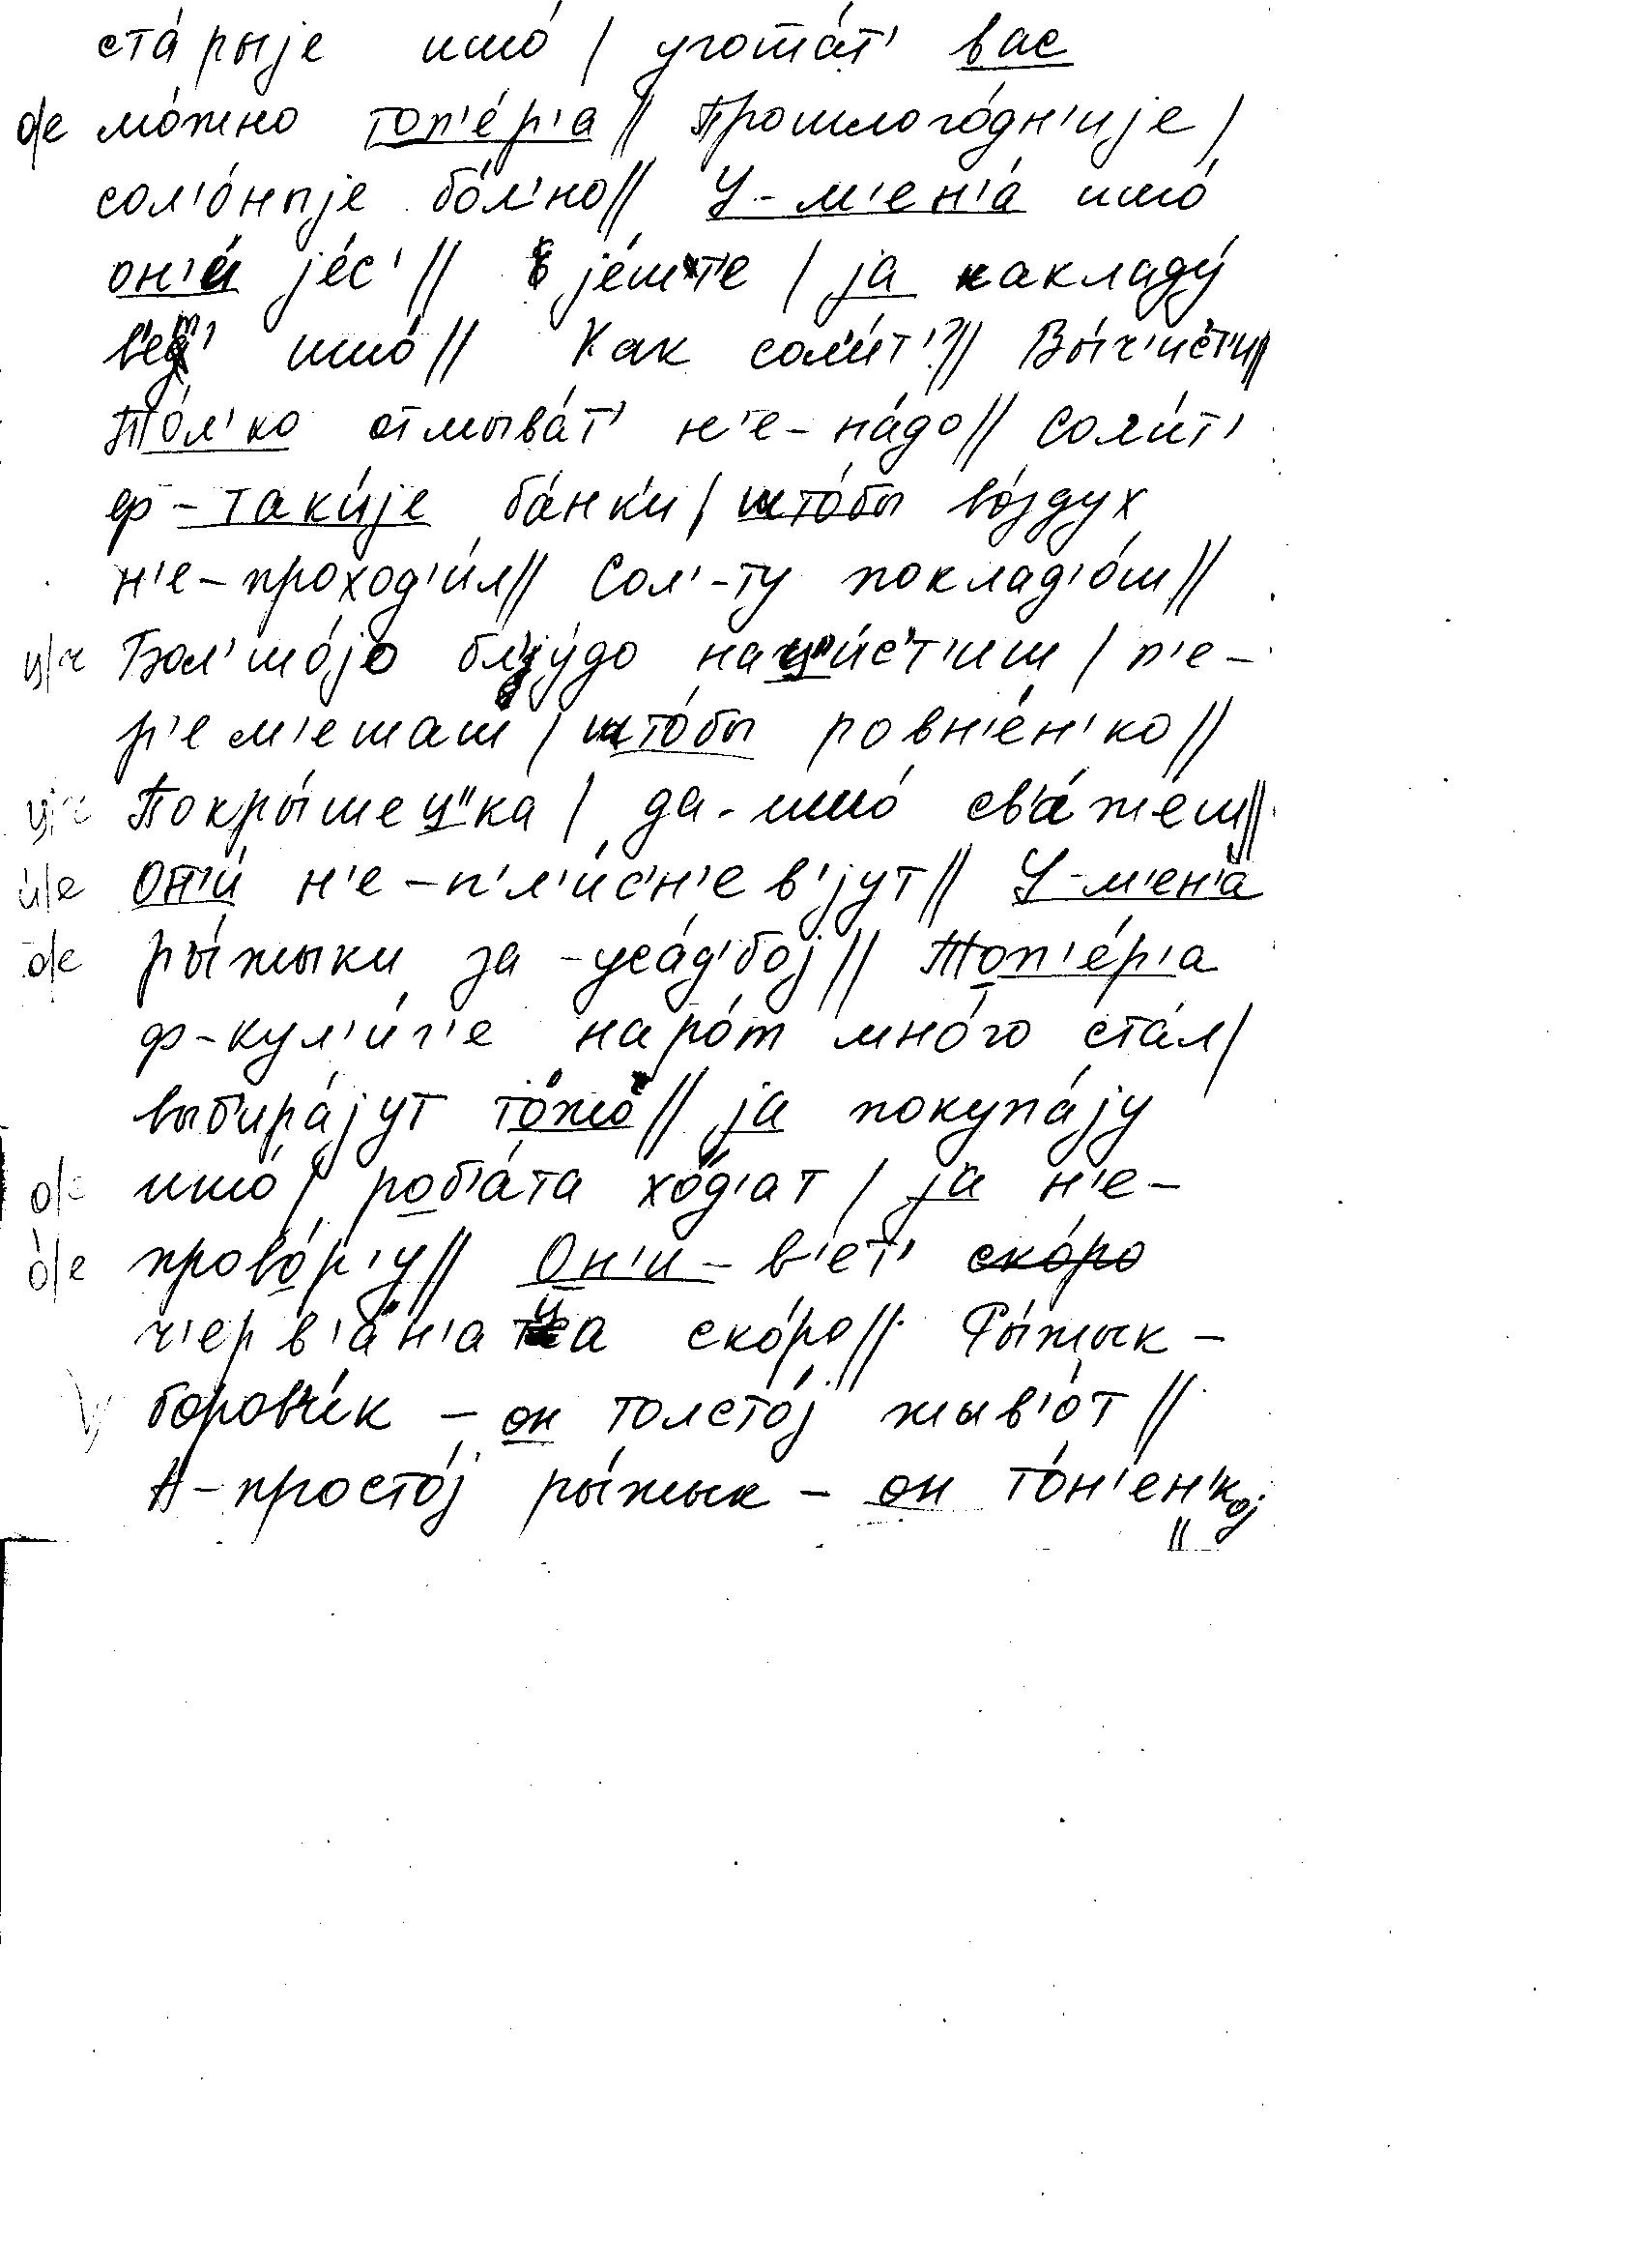 ста́рыје ишо́ / угошша́т' вас
о/е мо́жно топ'е́р'а // Прошлого́дн'ије /
сол'о́ныје бо́л'но // У-м'ен'а́ ишо́
он'и́ је́с' // је́шт'е / ја накладу́
в'ет' ишо́ // Как сол'и́т'? // Вы́ч'ис'т'и //
То́л'ко отмыва́т' н'е-на́до // Сол'и́т'
ф-так'и́је ба́нк'и / што́бы во́здух
н'е-проход'и́л // Сол'-ту поклад'о́ш //
ц/ч Бол'шо́јо бл'у́до нац"и́с'т'иш / п'е-
р'ем'ешаш / што́бы ровн'е́н'ко //
ц/ч Покры́шец"ка / да-ишо́ св'а́жеш //
и́/е Он'и́ н'е-п'л'и́с'н'ев'јут // У-м'ен'а́
о/е ры́жыки за-уса́д'бој // Топ'е́р'а
ф-кул'и́г'е наро́т мно́го ста́л /
выб'ира́јут то́жо // ја покупа́ју
о/е ишо́ / роб'а́та хо́д'ат / ја н'е-
о́/е прово́р'у // Он'и-в'ет'
ч'ерв'а́н'аца ско́ро // Ры́жык-
боров'и́к – он толсто́ј жыв'о́т //
А-просто́ј ры́жык – он то́н'ен'кој
//